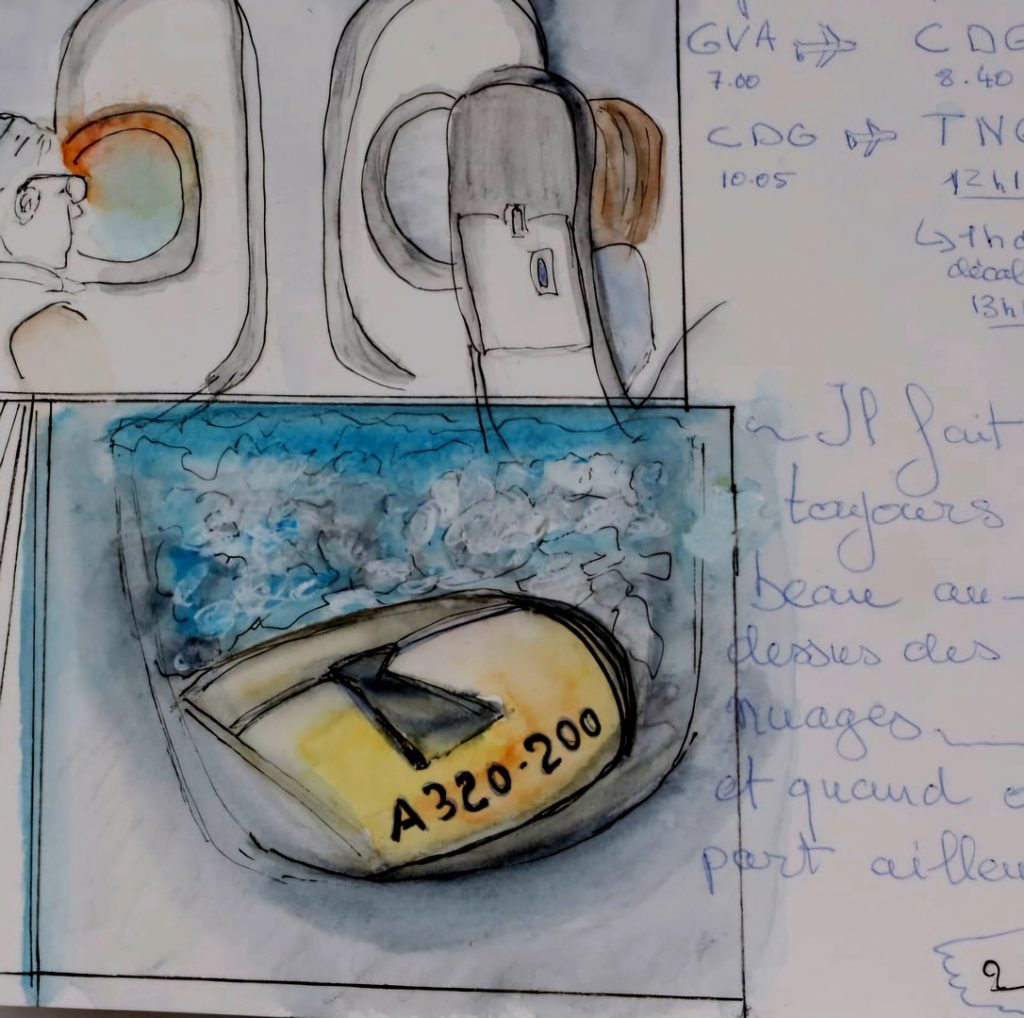 GVA CDG
7.00 8.40
CDG TNG
10.05 12h1
↳ 1h d
décal
13h
~ Il fait
toujours
beau au-
dessus des
nuages
et quand
part ailleu
A320-200